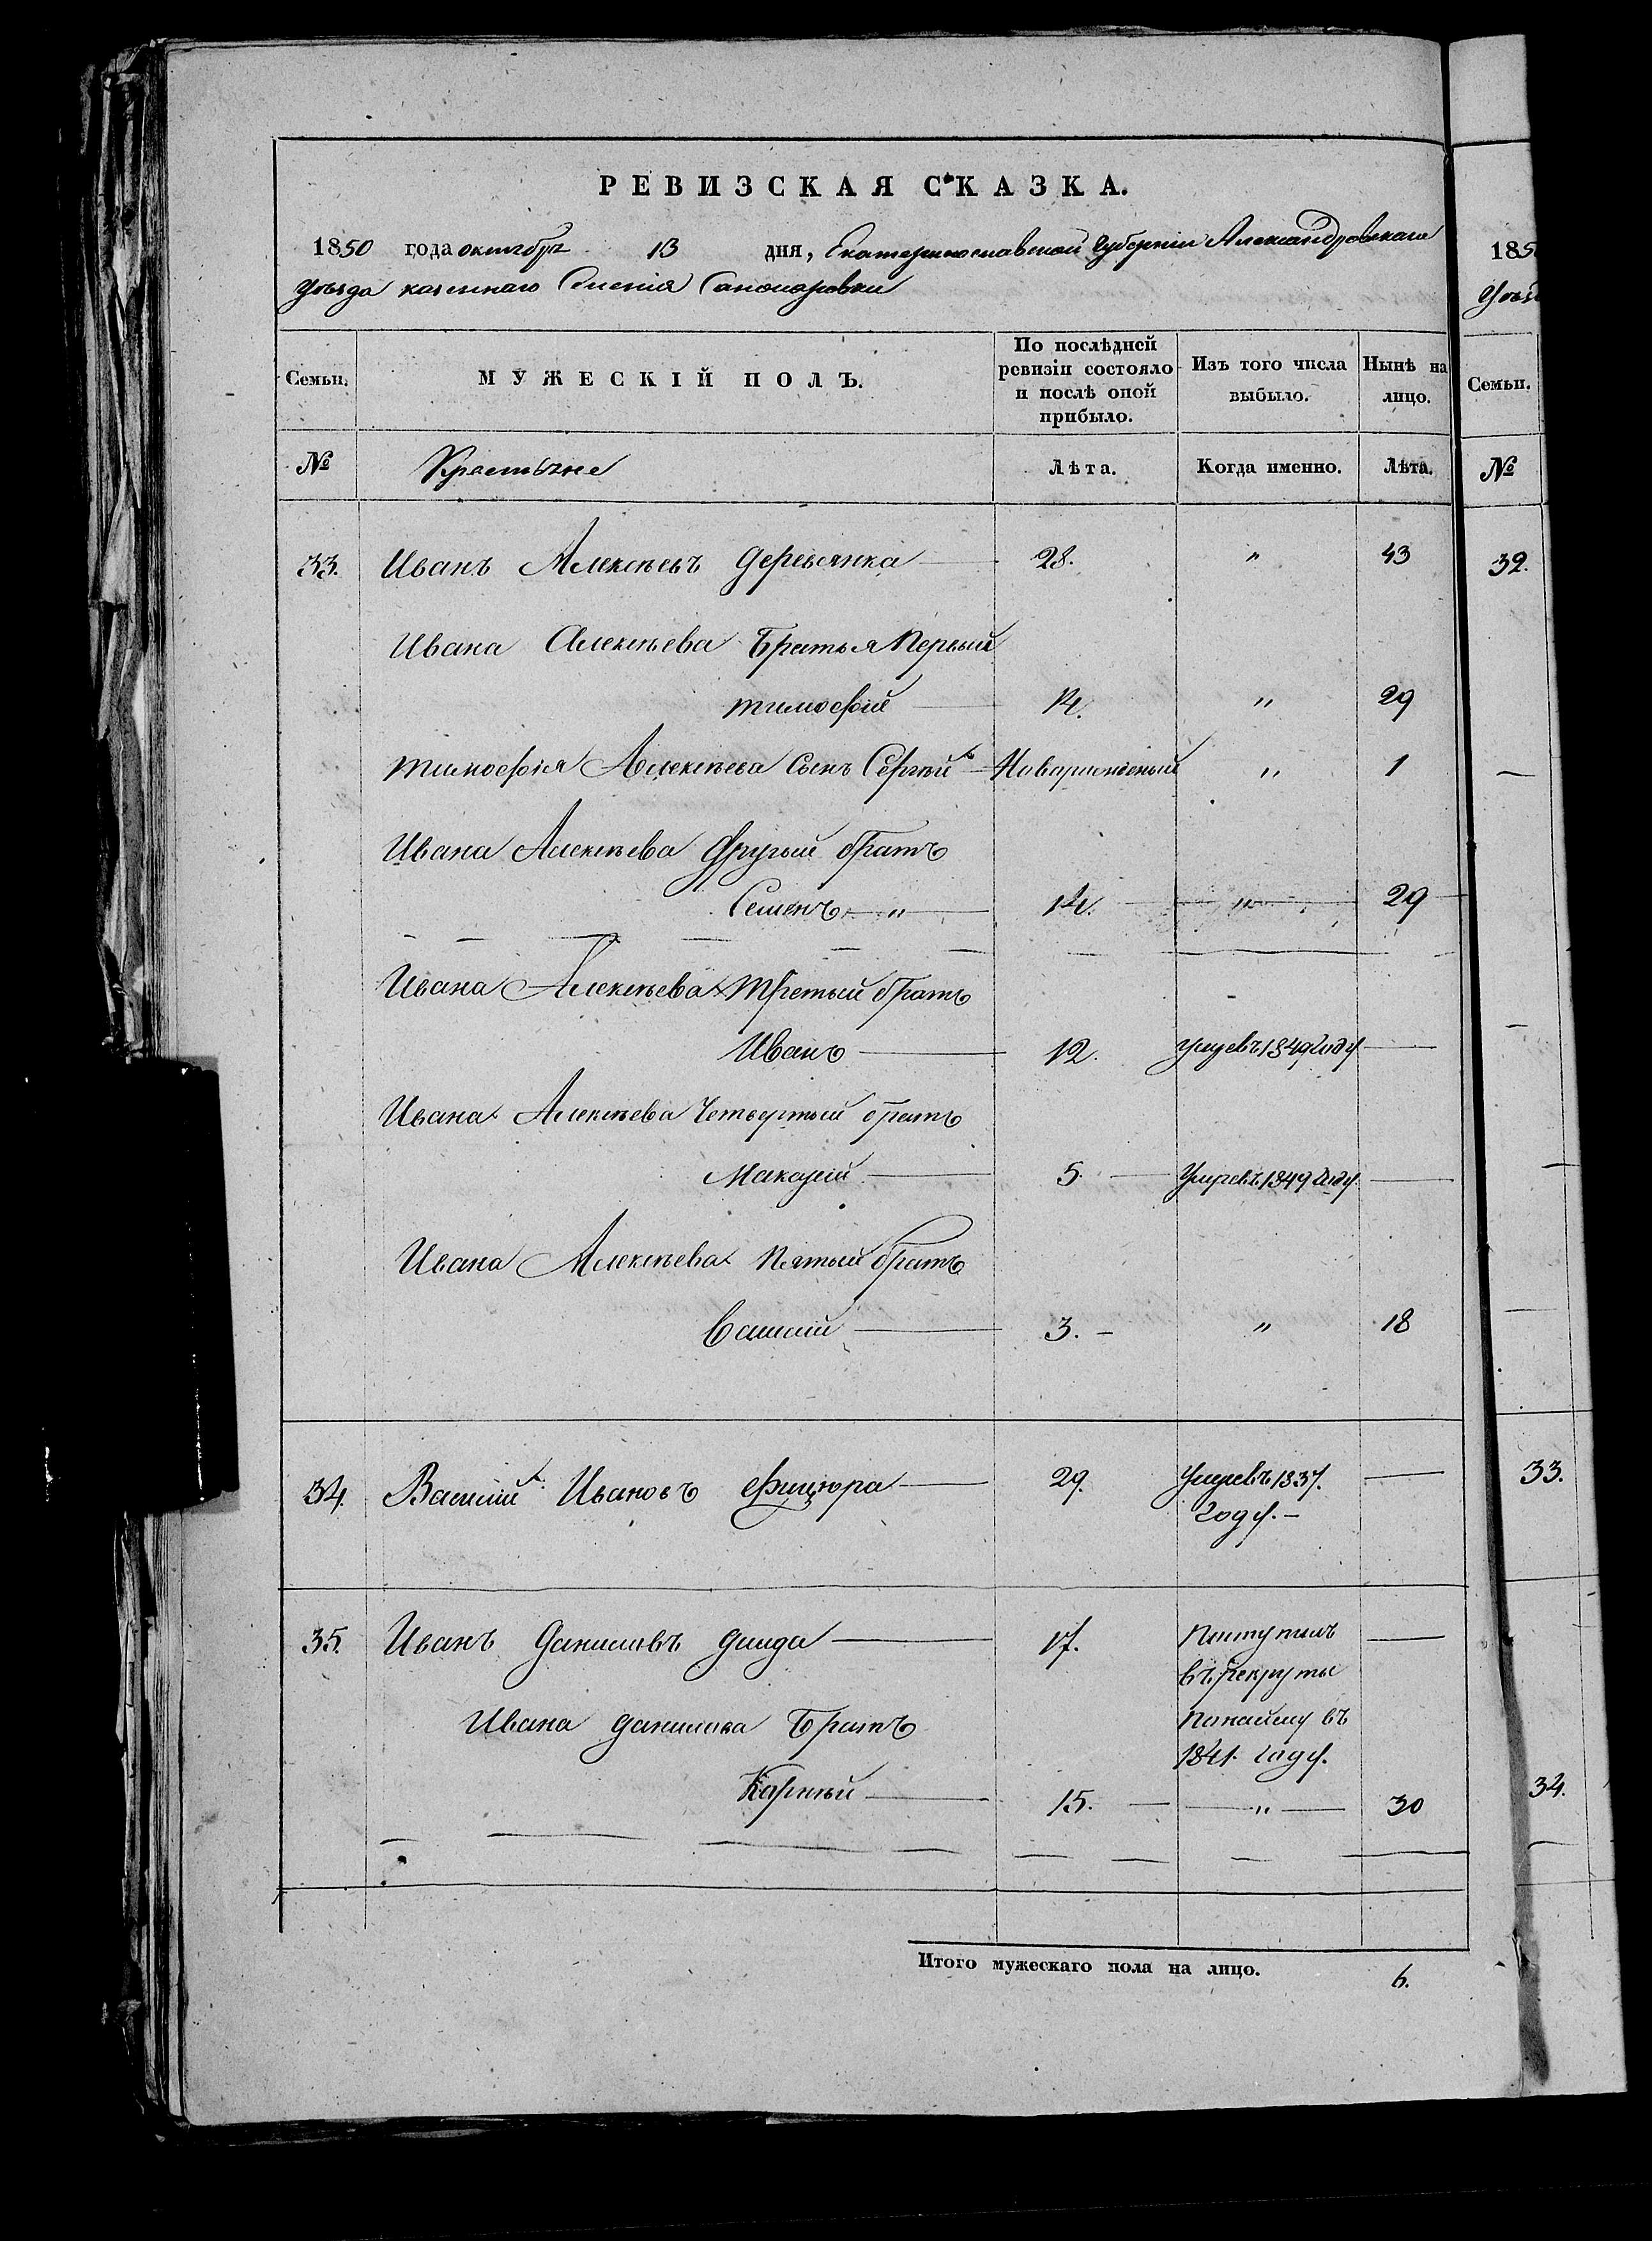 РЕВИЗСКАЯ СКАЗКА.
1850 года октября 13 дня, Екатеринославской Губерніи Александровскаго
уѣзда казеннаго Селенія
Семьи. МУЖЕСКІЙ ПОЛЪ. По послѣдней ревизіи состояло и послѣ оной прибыло. Изъ того числа выбыло. Нынѣ на лицо.
№ Крестьяне Лѣта. Когда именно. Лѣта.
33. Иванъ Алексѣевъ Деревянка 28. " 43
Ивана Алексѣева Братья Первый
Тимофій 14. " 29
Тимофія Алексѣева Сынъ Сергѣй Новорожденый " 1
Ивана Алексѣева Другий братъ
Семенъ " 14. " 29
Ивана Алексѣева Третий братъ
Иванъ 12. умревъ 1849 Году
Ивана Алексѣева Четвертый братъ
Макарій 5. Умревъ 1849 Году
Ивана Алексѣева Пятый братъ
Василій 3. " 18
34. Василій Ивановъ Фицюра 29. Умревъ 1837.
Году.
35. Иванъ Даниловъ 17. Поступилъ
въ рекруты
Ивана Данилова Братъ понайму въ
1841. Году.
Карнѣй 15. " 30
Итого мужескаго пола на лицо. 6.
185
Уѣз
Семьи.
№
32.
33.
34.